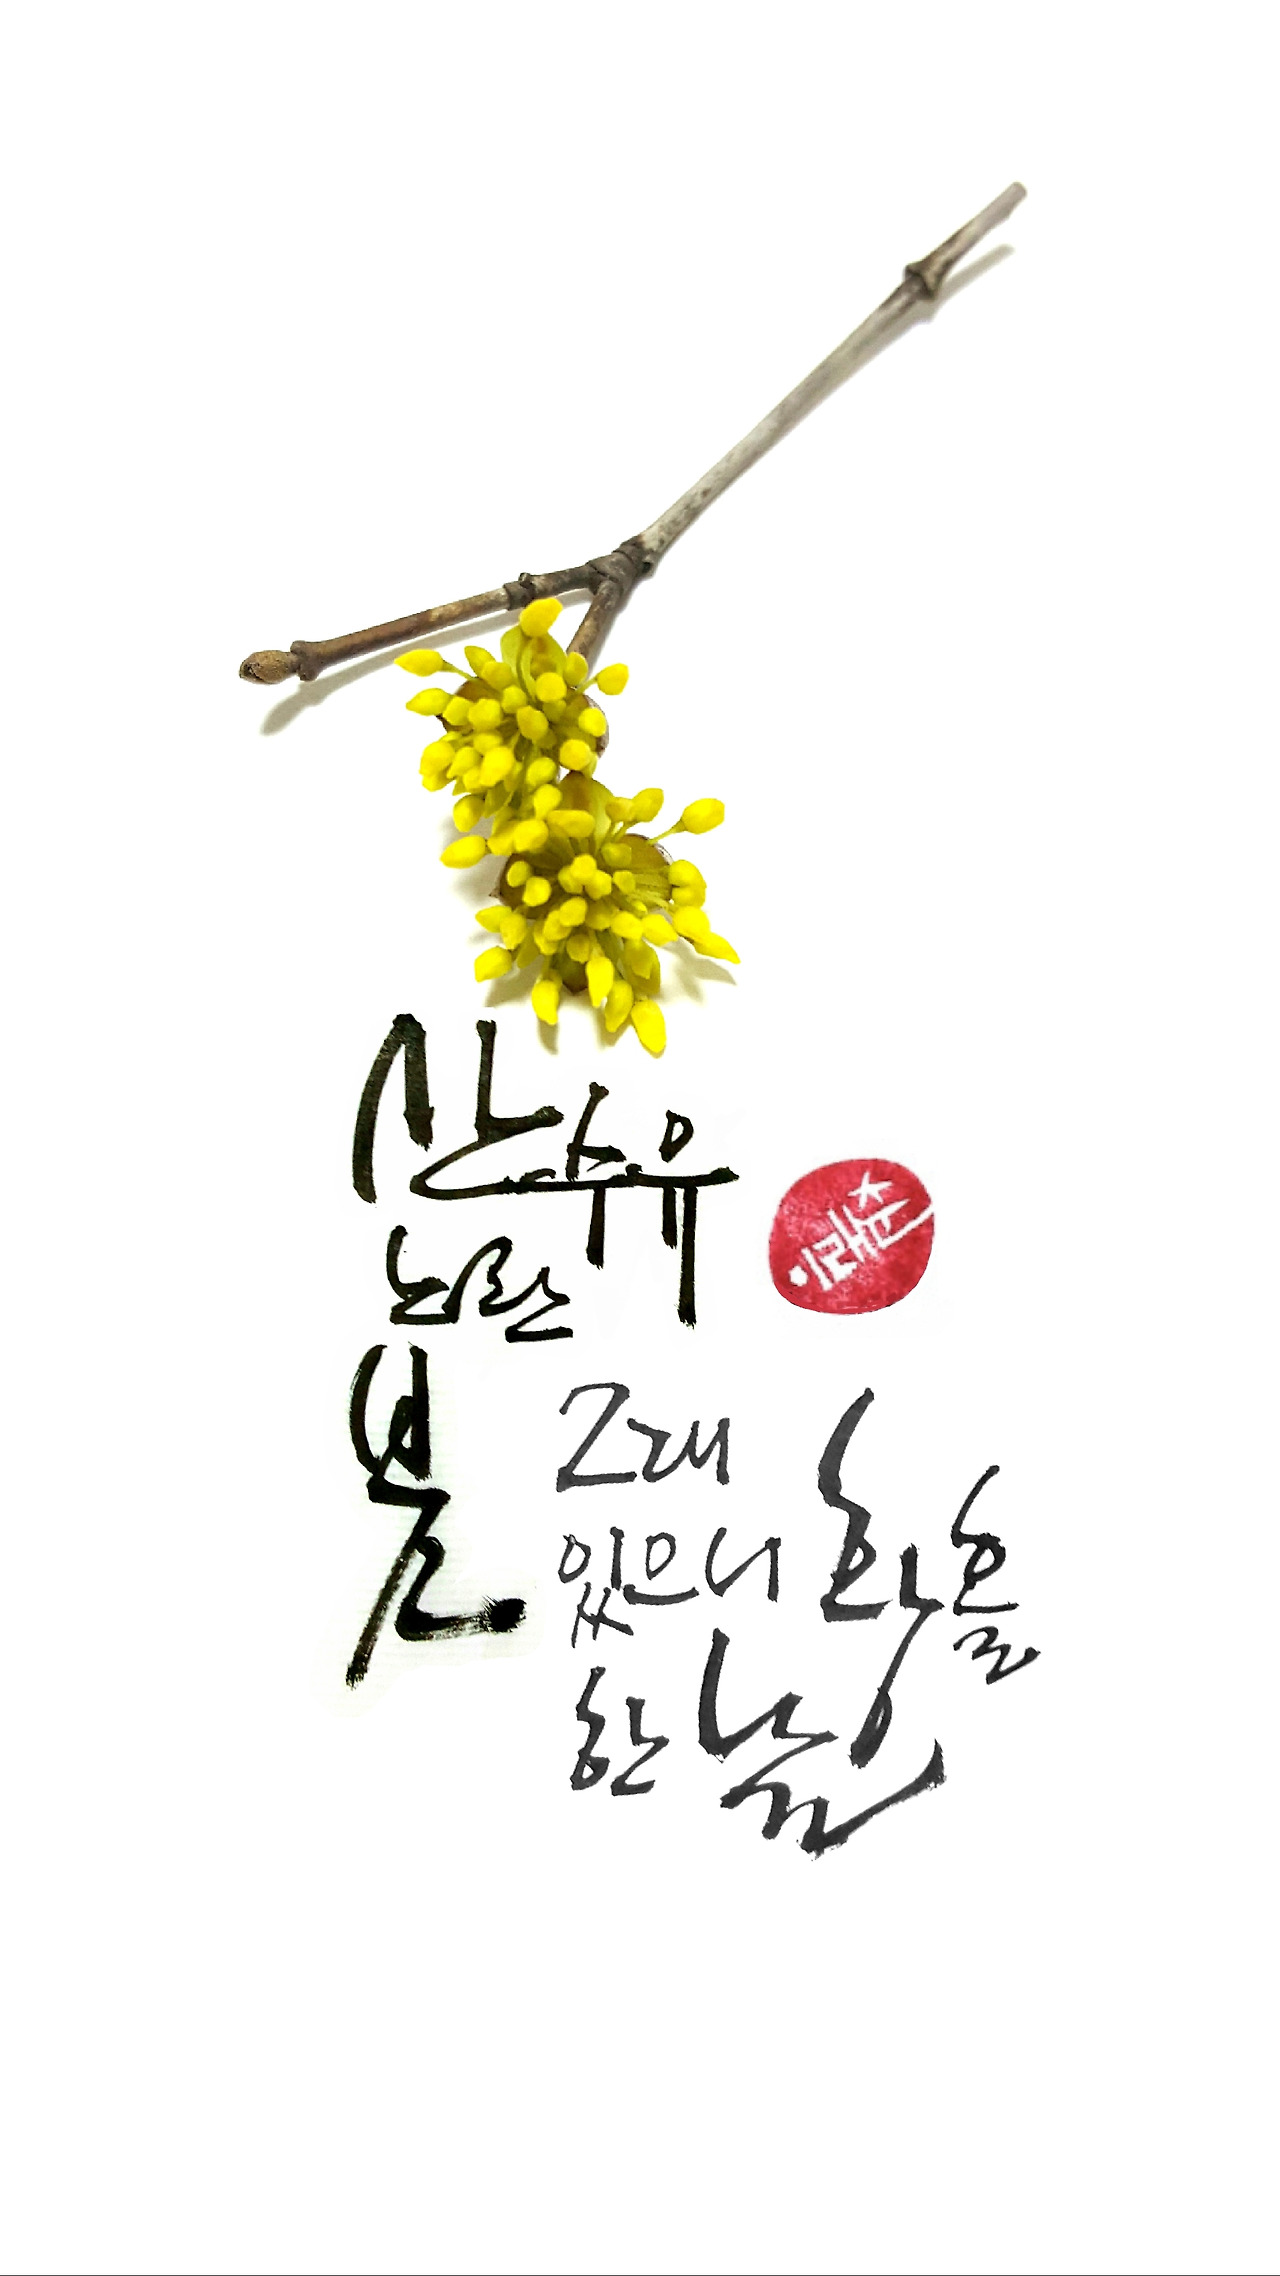 산수유
노란
봄.
이래춘
그대
있으니 황홀
한 날